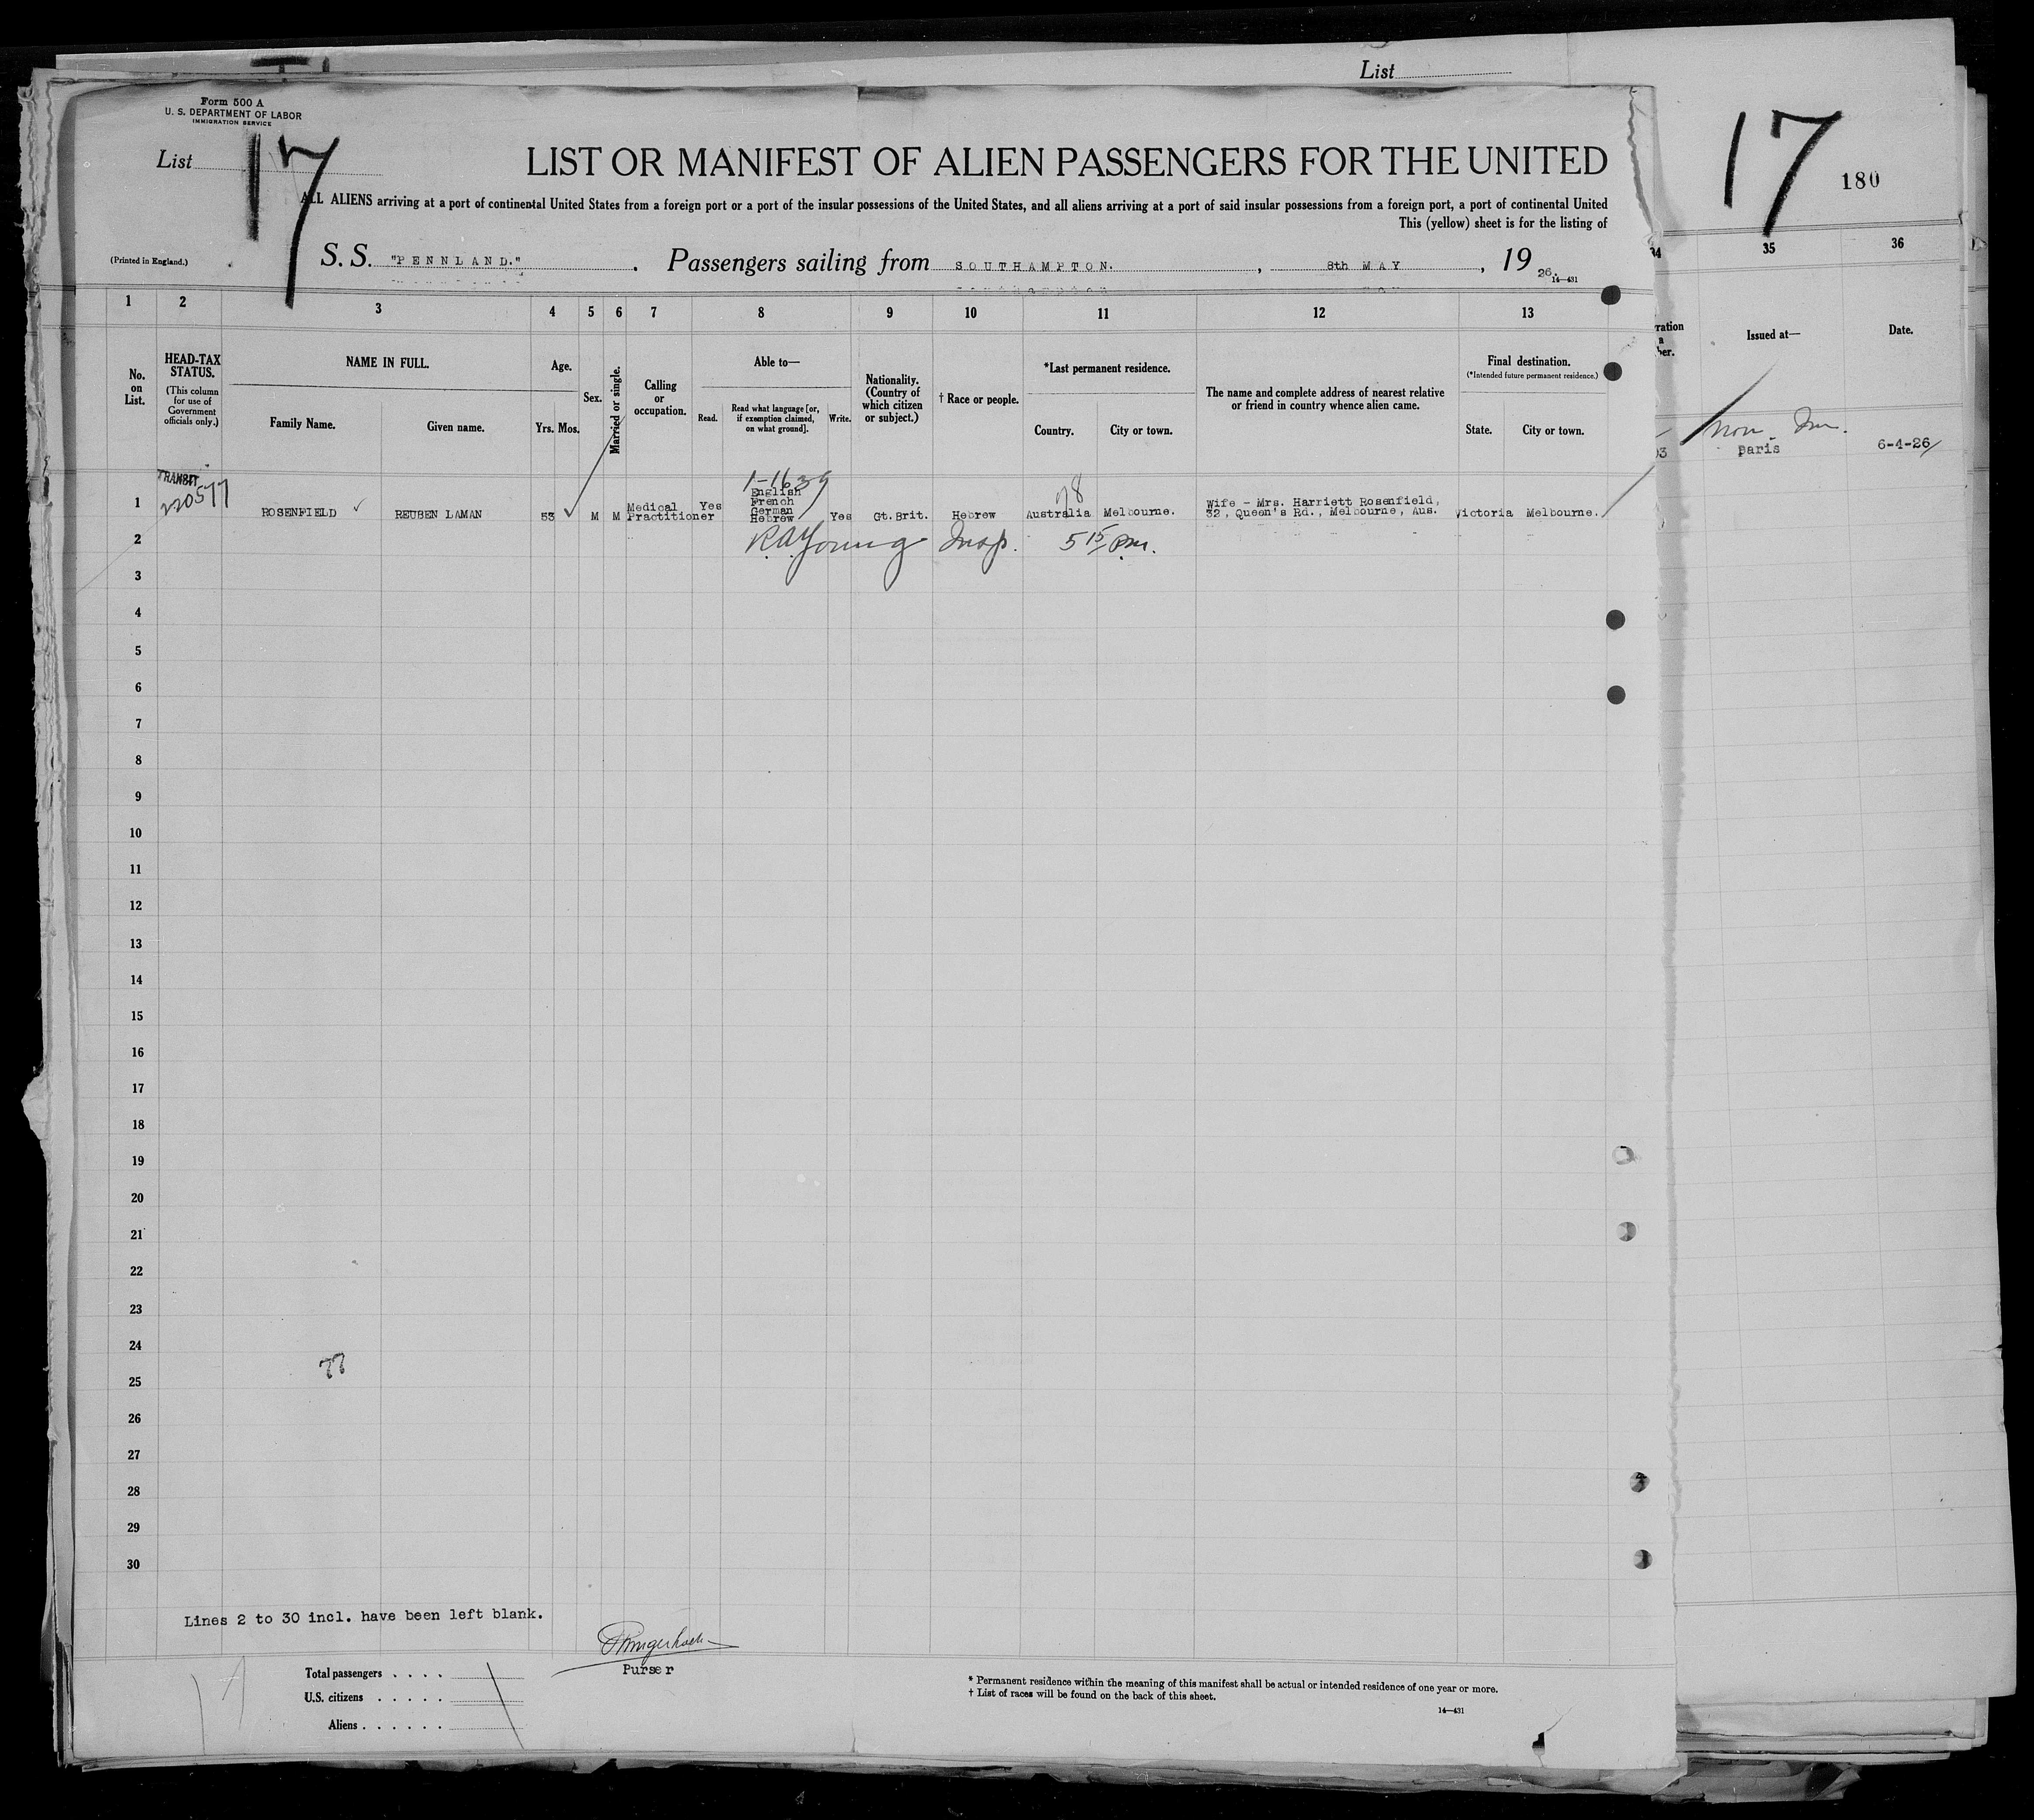 List
Form 500 A
U. S. DEPARTMENT OF LABOR
IMMIGRATION SERVICE
List 17
LIST OR MANIFEST OF ALIEN PASSENGERS FOR THE UNITED
17
180
ALL ALIENS arriving at a port of continental United States from a foreign port or a port of the insular possessions of the United States, and all aliens arriving at a port of said insular possessions from a foreign port, a port of continental United
This (yellow) sheet is for the listing of
(Printed in England.)
S. S. "PENNLAND." . Passengers sailing from SOUTHAMPTON. , 8th MAY , 19 26.
14—431
1 2 3 4 5 6 7 8 9 10 11 12 13
34 35 36
No. on List.
HEAD-TAX STATUS.
(This column for use of Government officials only.)
NAME IN FULL.
Family Name.
Given name.
Age.
Yrs. Mos.
Sex.
Married or single.
Calling or occupation.
Able to—
Read.
Read what language [or, if exemption claimed, on what ground].
Write.
Nationality. (Country of which citizen or subject.)
† Race or people.
*Last permanent residence.
Country.
City or town.
The name and complete address of nearest relative or friend in country whence alien came.
Final destination.
(*Intended future permanent residence.)
State.
City or town.
Issued at—
Date.
Non. Im.
Paris
6-4-26
TRANSIT
220577
1-1639
1 ROSENFIELD REUBEN LAMAN 53 M M Medical Practitioner Yes English French German Hebrew Yes Gt.Brit. Hebrew Australia Melbourne. Wife - Mrs. Harriett Rosenfield, 32, Queen's Rd., Melbourne, Aus. Victoria Melbourne.
2 R A Young Insp. 5 15 Pm.
3
4
5
6
7
8
9
10
11
12
13
14
15
16
17
18
19
20
21
22
23
24
77
25
26
27
28
29
30
Lines 2 to 30 incl. have been left blank.
Purser
Total passengers . . . .
U.S. citizens . . . . .
Aliens . . . . . .
* Permanent residence within the meaning of this manifest shall be actual or intended residence of one year or more.
† List of races will be found on the back of this sheet.
14—431